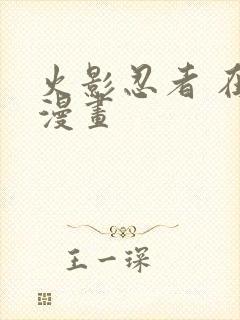 火影忍者 在
漫畫
王一琛